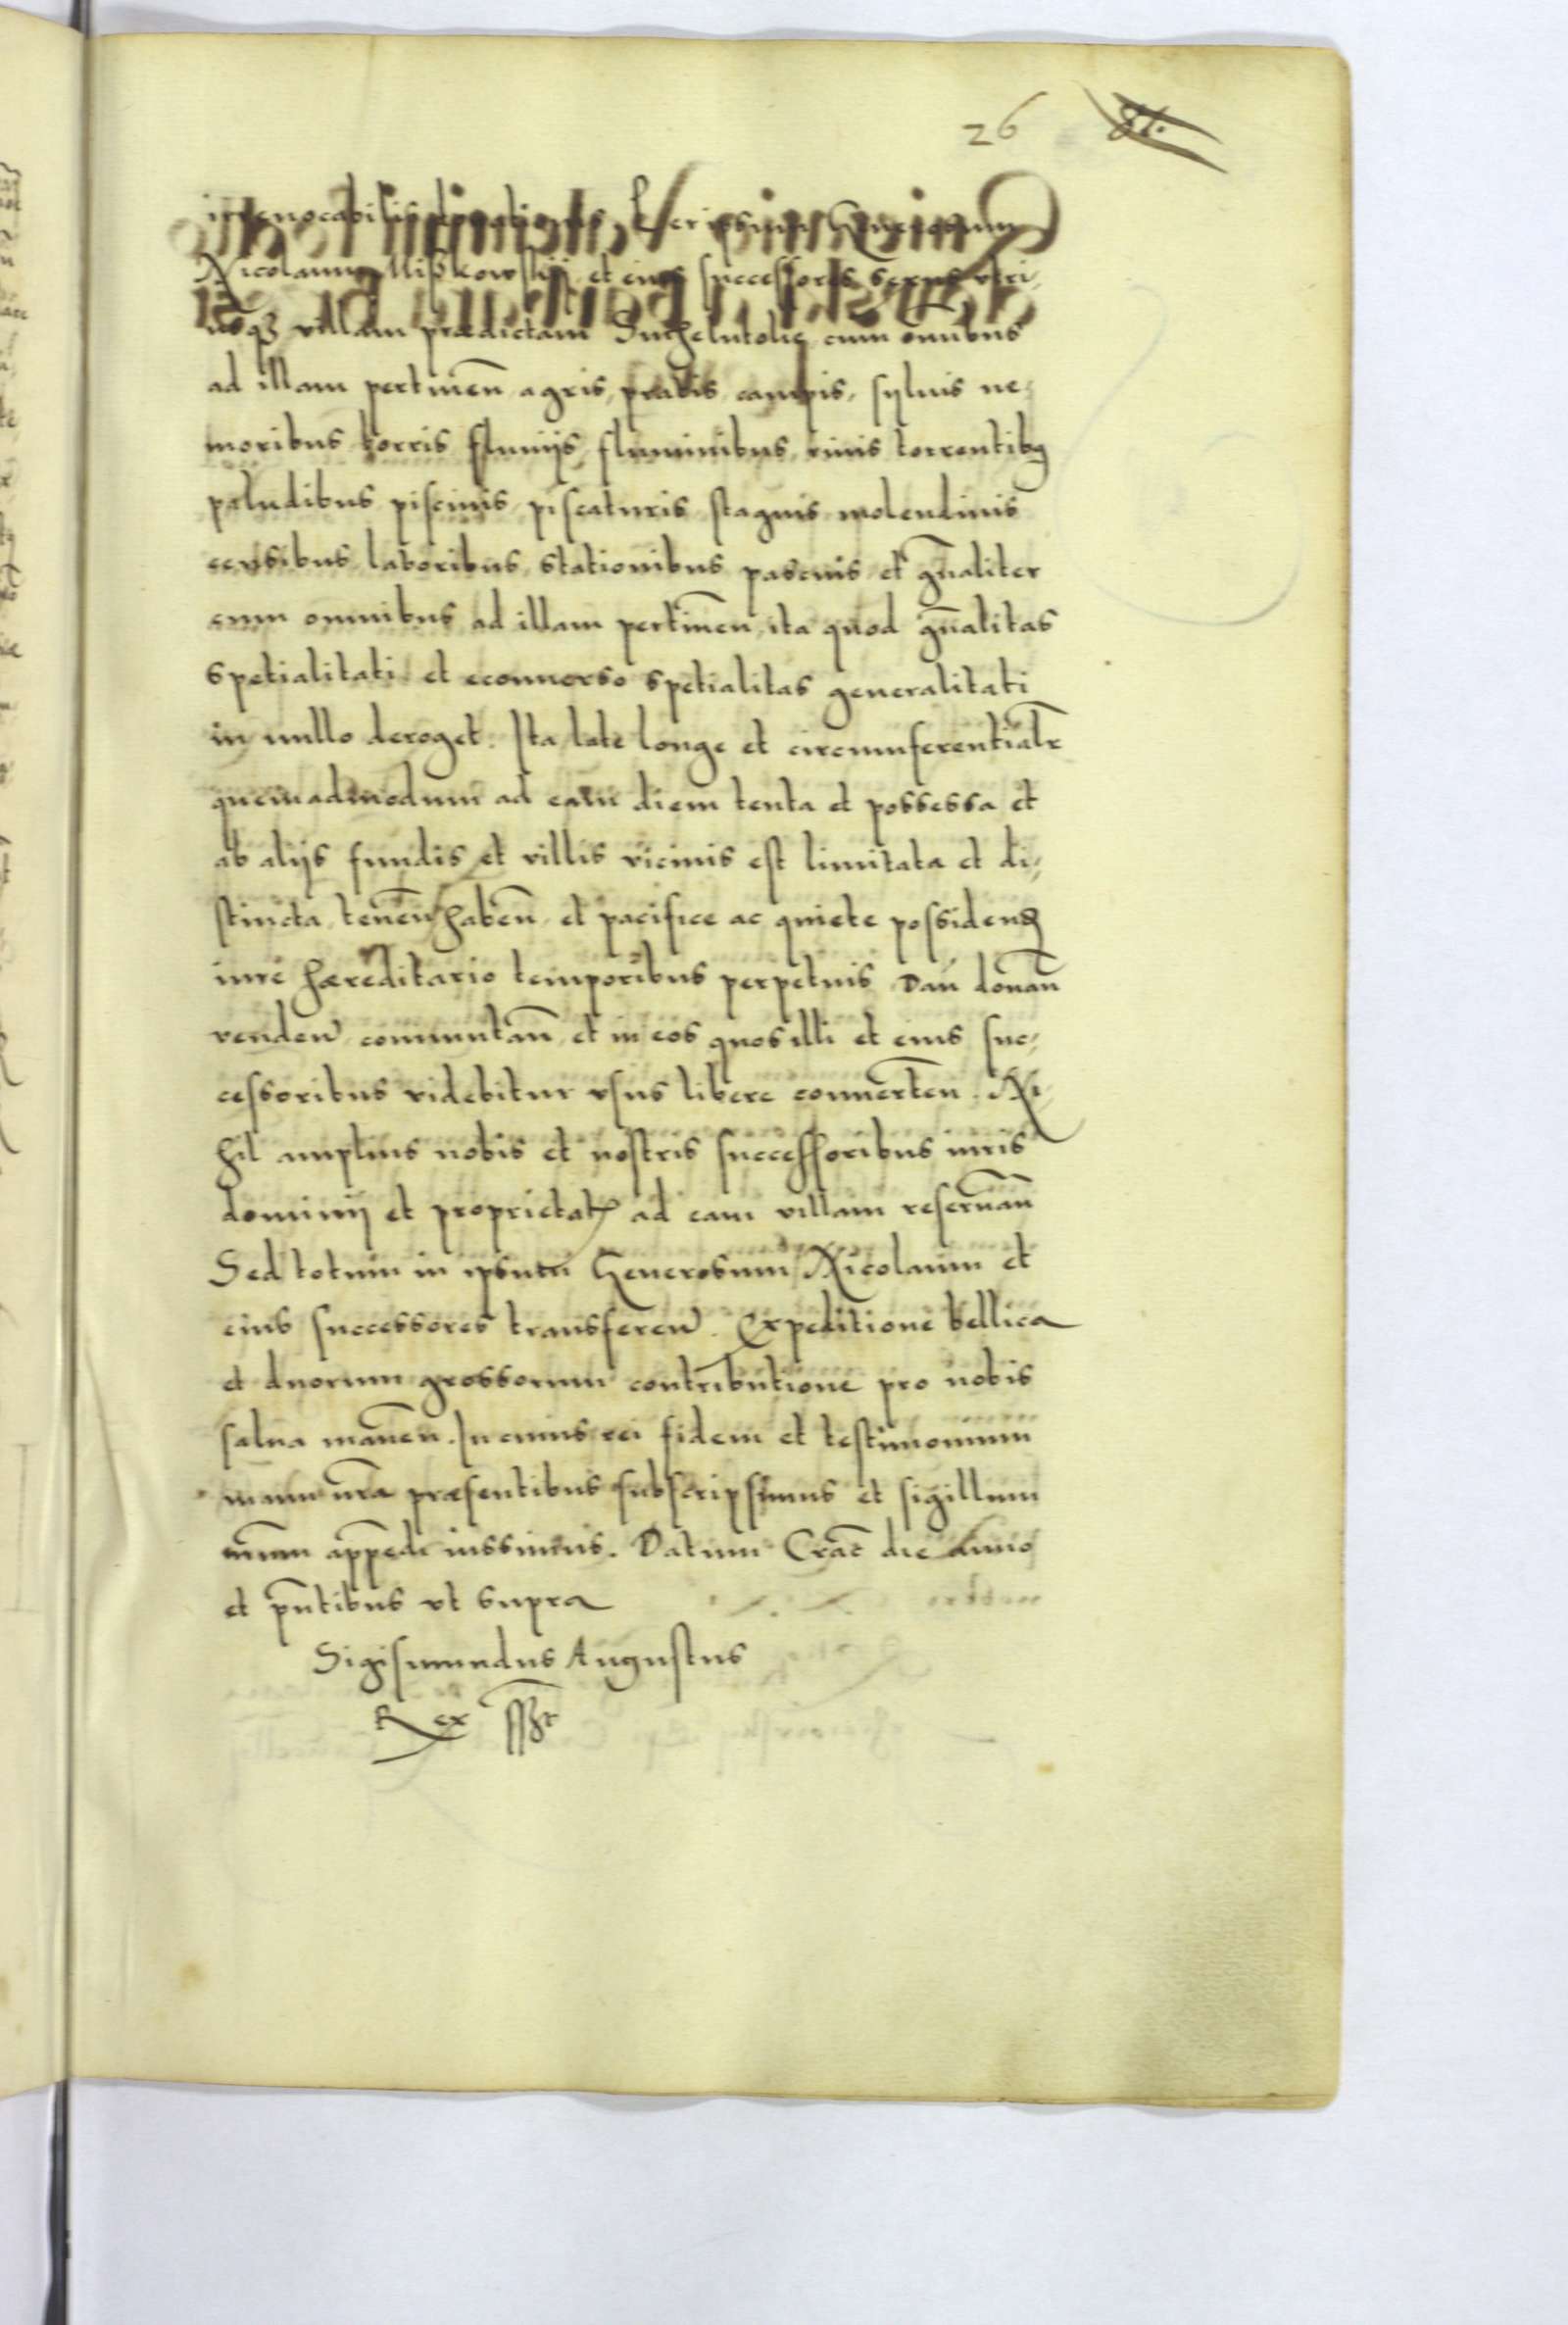 26 81.
irreuocabilis donationis per ipsum Generosum
Nicolaum Mißkowskij et eius successores sexus vtri-
usq3 villam prædictam cum om̄ibus
ad illam pertineñ agris, pratis campis, syluis ne-
moribus borris fluuijs, fluminibus riuis torrentibq
paludibus piscinis piscaturis stagnis molendinis
censibus laboribus stationibus pascuis et gn̄aliter
cum omnibus ad illam pertineñ ita quod gn̄alitas
spetialitati et econuerso spetialitas generalitati
in nullo deroget. Ita late longe et circumferentialr̄
quemadmodum ad eam diem tenta et possessa et
ab alijs fundis et villis vicinis est limitata et di-
stincta, teneñ habeñ et pacifice ac quiete possidend
iure hæreditario temporibus perpetuis Dañ donañ
vendeñ commutañ et in eos quos illi et eius suc-
cessoribus videbitur vsus libere conuerteñ. Ni-
hil amplius nobis et nostris successoribus iuris
dominij et proprietat ad eam villam reseruañ
Sed totum in ipsum Generosum Nicolaum et
eius successores transfereñ. Expeditione bellica
et duorum grossorum contributione pro nobis
salua maneñ. In cuius rei fidem et testimonium
manu nr̄a præsentibus subscripsimus et sigillum
nr̄um appendi iussimus. Datum Crac̄ die anno
et pn̄tibus vt supra
Sigismundus Augustus
Rex sst